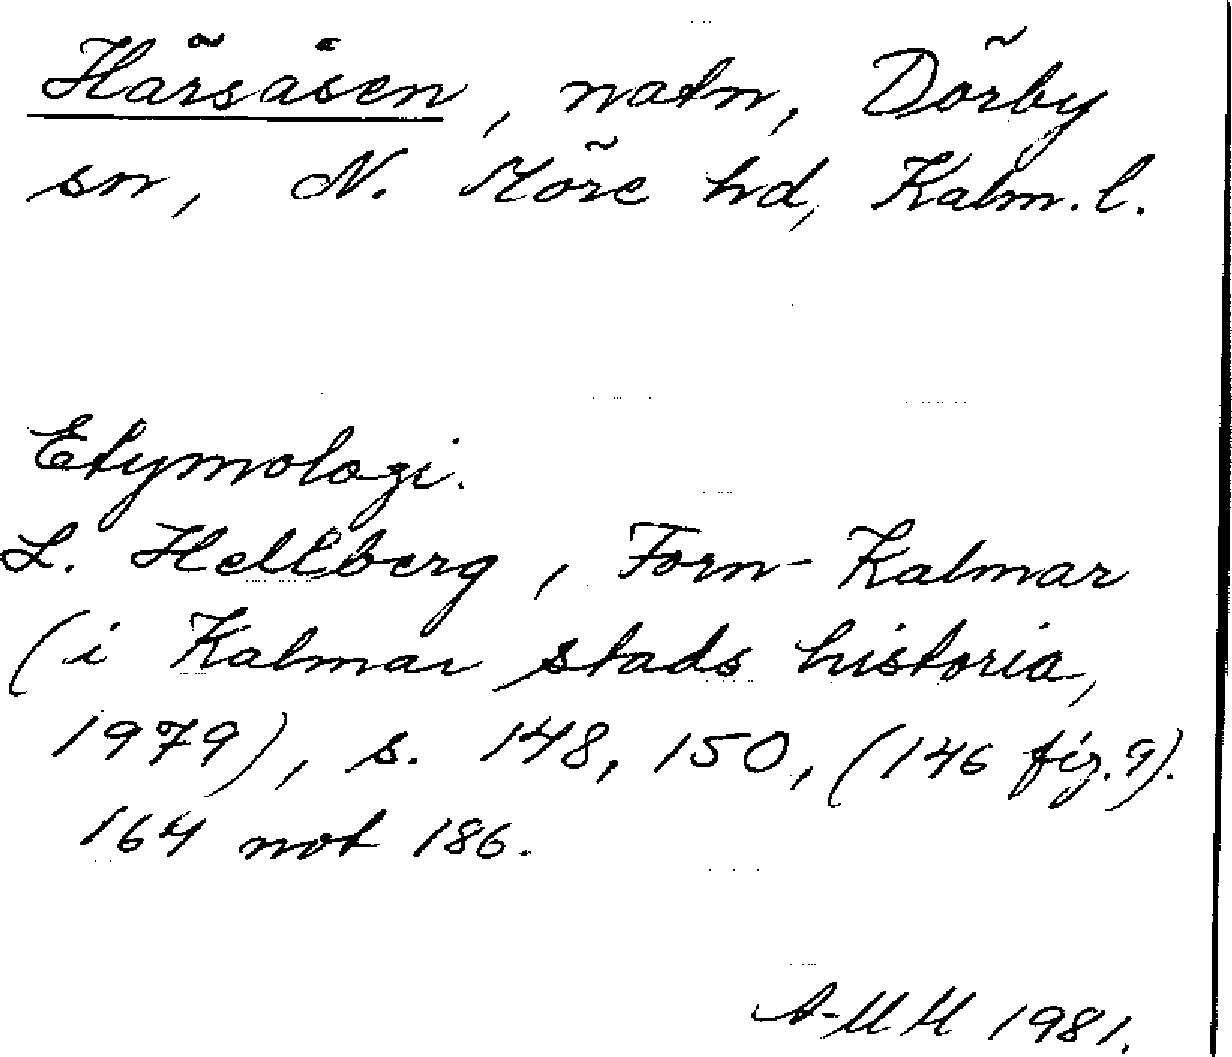 Härsåsen, natn, Dörby
sn, N. Möre hd, Kalm. l.
Etymologi.
L. Hellberg, Forn-Kalmar
(i Kalmar stads historia,
1979), s. 148, 150, (146 fig. 9).
164 not 186.
A-MH 1981.